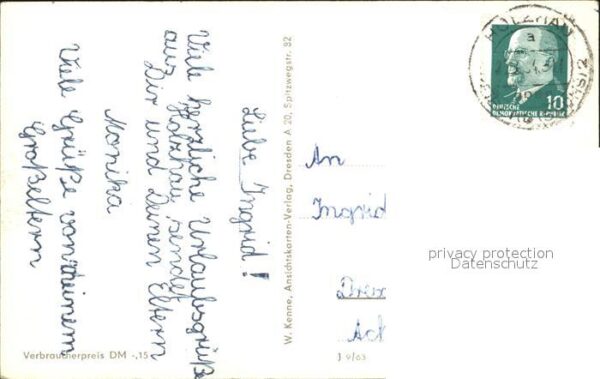 Liebe Ingrid!
Viele herzliche Urlaubsgrüße
aus Holzhau sendet
Dir und Deinen Eltern
Monika
Viele Grüße von deinem
Großeltern
W. Kenne, Ansichtskarten-Verlag, Dresden A 20, Spitzwegstr. 32
An
Ingrid
HOLZHAU
10
DEUTSCHE
DEMOKRATISCHE REPUBLIK
privacy protection
Datenschutz
Verbraucherpreis DM -,15
J 9/63